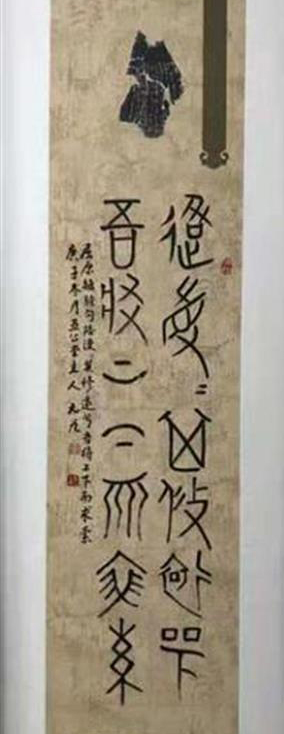 路漫〻其修遠兮
吾將上下而求索
屈原離騷句路漫〻其修遠兮吾將上下而求索
庚子冬月公堂主人